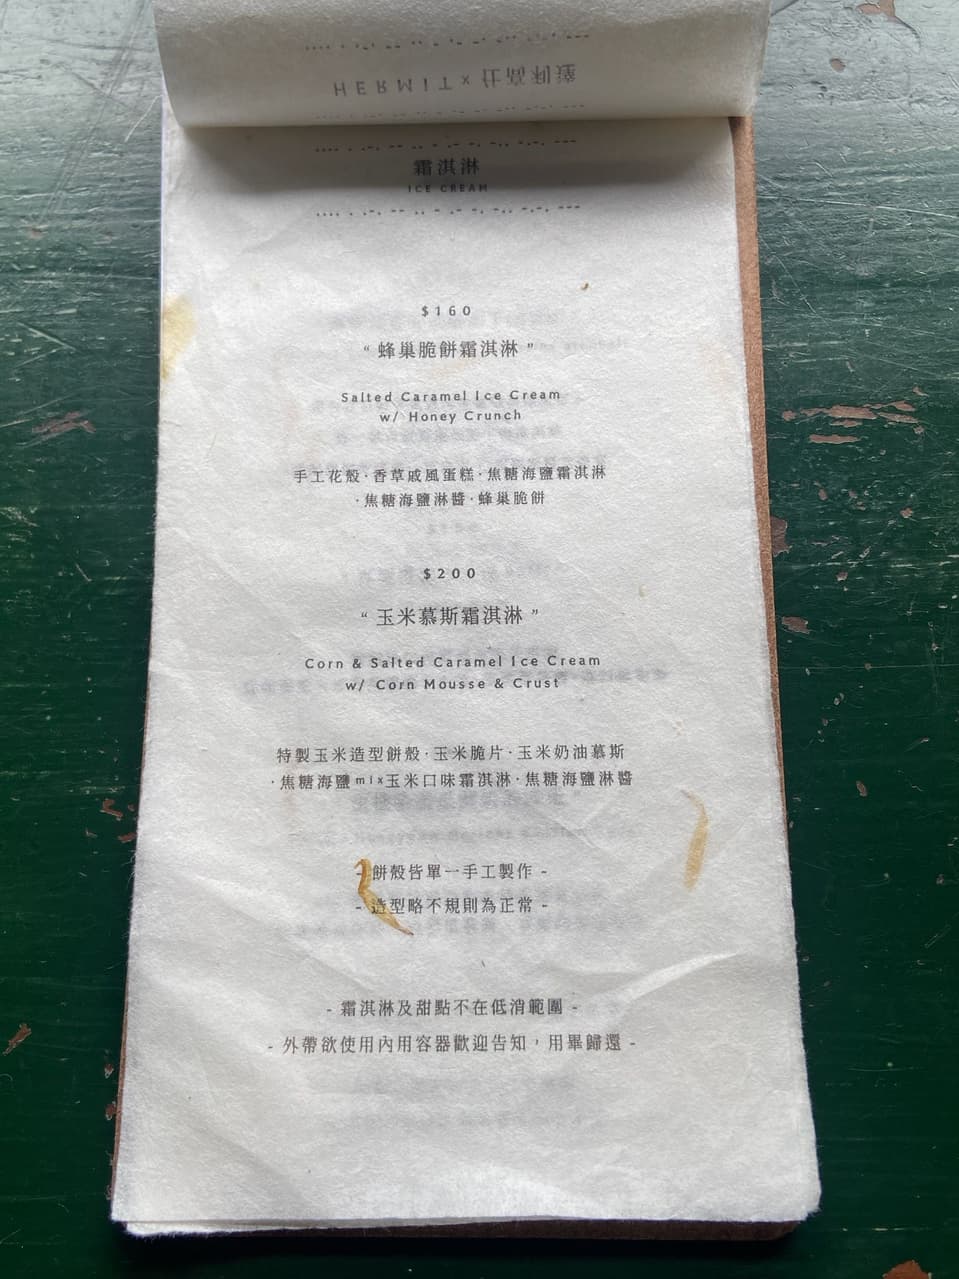 HERMIT x 仕高利達
霜淇淋
ICE CREAM
$160
“ 蜂巢脆餅霜淇淋 ”
Salted Caramel Ice Cream
w/ Honey Crunch
手工花殼·香草戚風蛋糕·焦糖海鹽霜淇淋
·焦糖海鹽淋醬·蜂巢脆餅
$200
“ 玉米慕斯霜淇淋 ”
Corn & Salted Caramel Ice Cream
w/ Corn Mousse & Crust
特製玉米造型餅殼·玉米脆片·玉米奶油慕斯
·焦糖海鹽mix玉米口味霜淇淋·焦糖海鹽淋醬
- 餅殼皆單一手工製作 -
- 造型略不規則為正常 -
- 霜淇淋及甜點不在低消範圍 -
- 外帶欲使用內用容器歡迎告知，用畢歸還 -